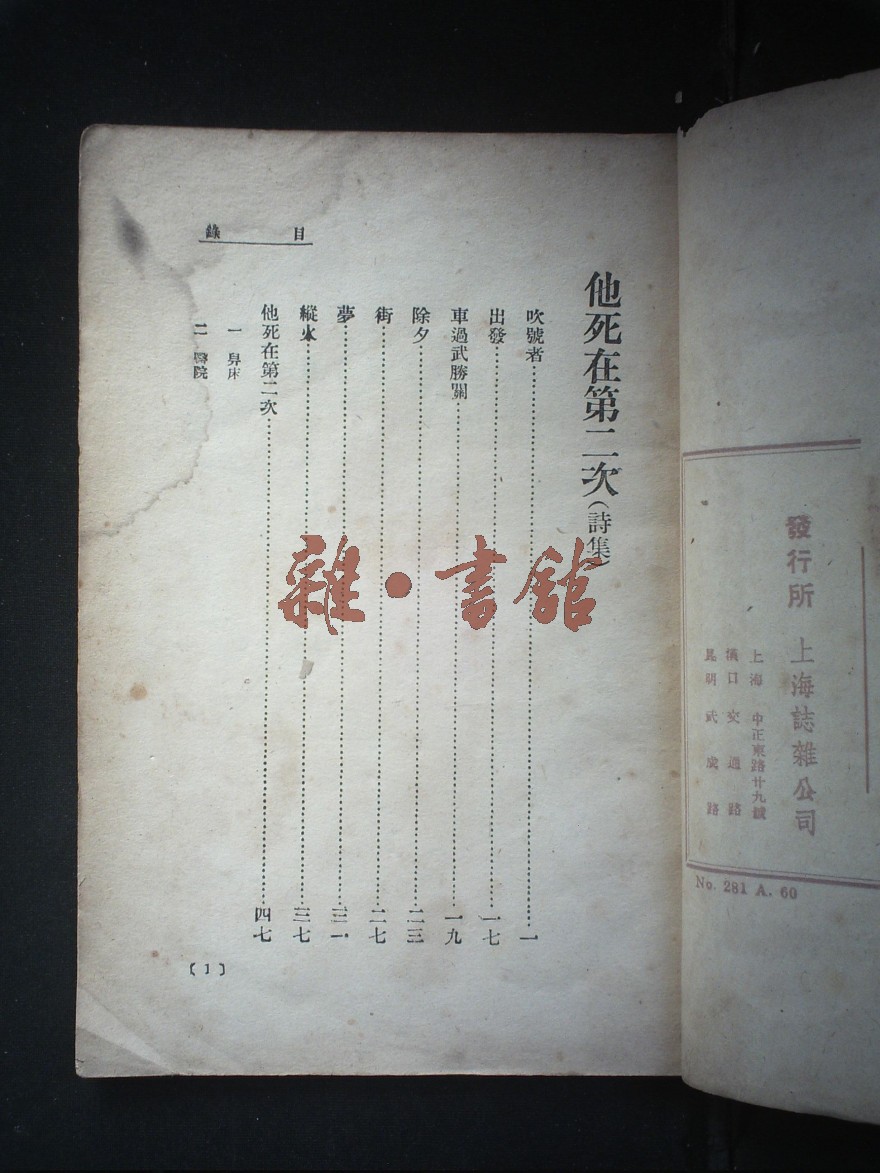 發行所 上海誌雜公司
上海 中正東路廿九號
漢口 交通路
昆明 武成路
No. 281 A. 60
目錄
他死在第二次（詩集）
吹號者⋯⋯一
出發⋯⋯一七
車過武勝關⋯⋯一九
除夕⋯⋯二三
街⋯⋯二七
夢⋯⋯三一
縱火⋯⋯三七
他死在第二次⋯⋯四七
一 舁床
二 醫院
〔1〕
雜·書館